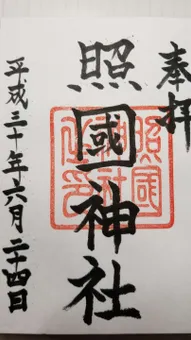 奉拝
照國神社
平成三十年六月二十四日
照國神社之印